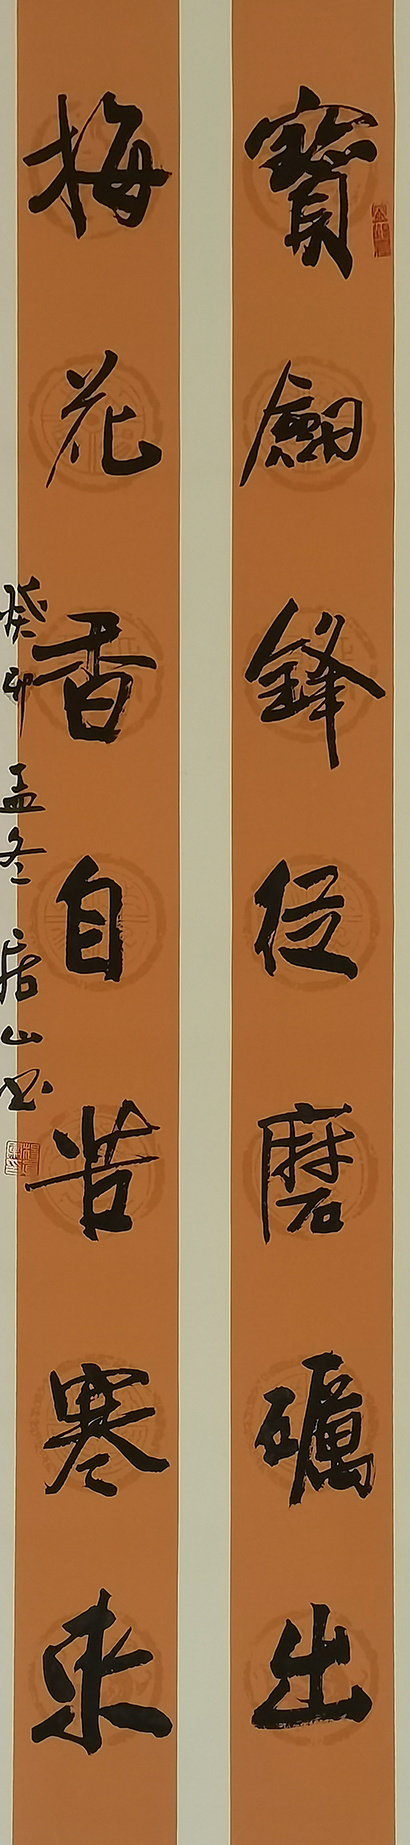 寶劍鋒從磨礪出
梅花香自苦寒來
癸卯孟冬 居山书